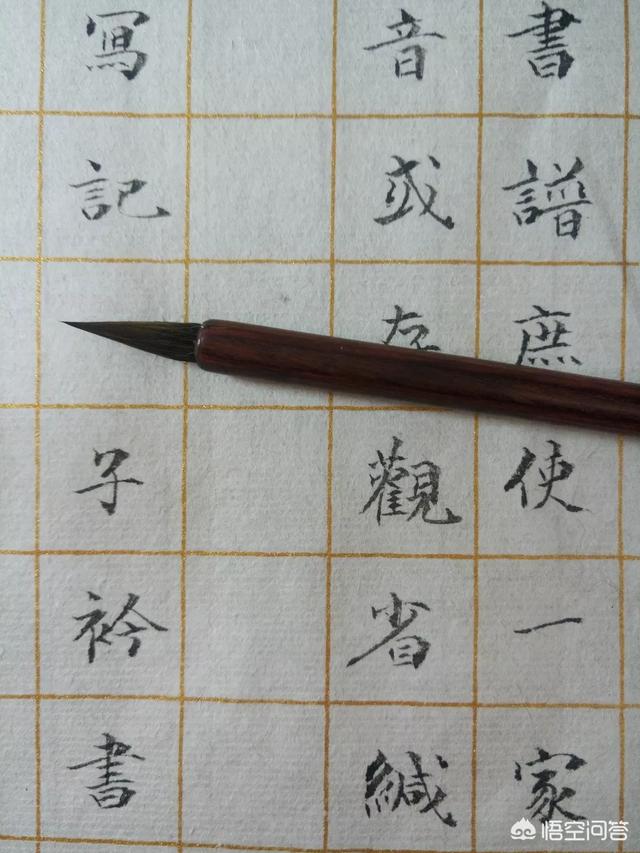 書譜庶使一家
音或存觀省緘
寫記
子衿書
悟空问答